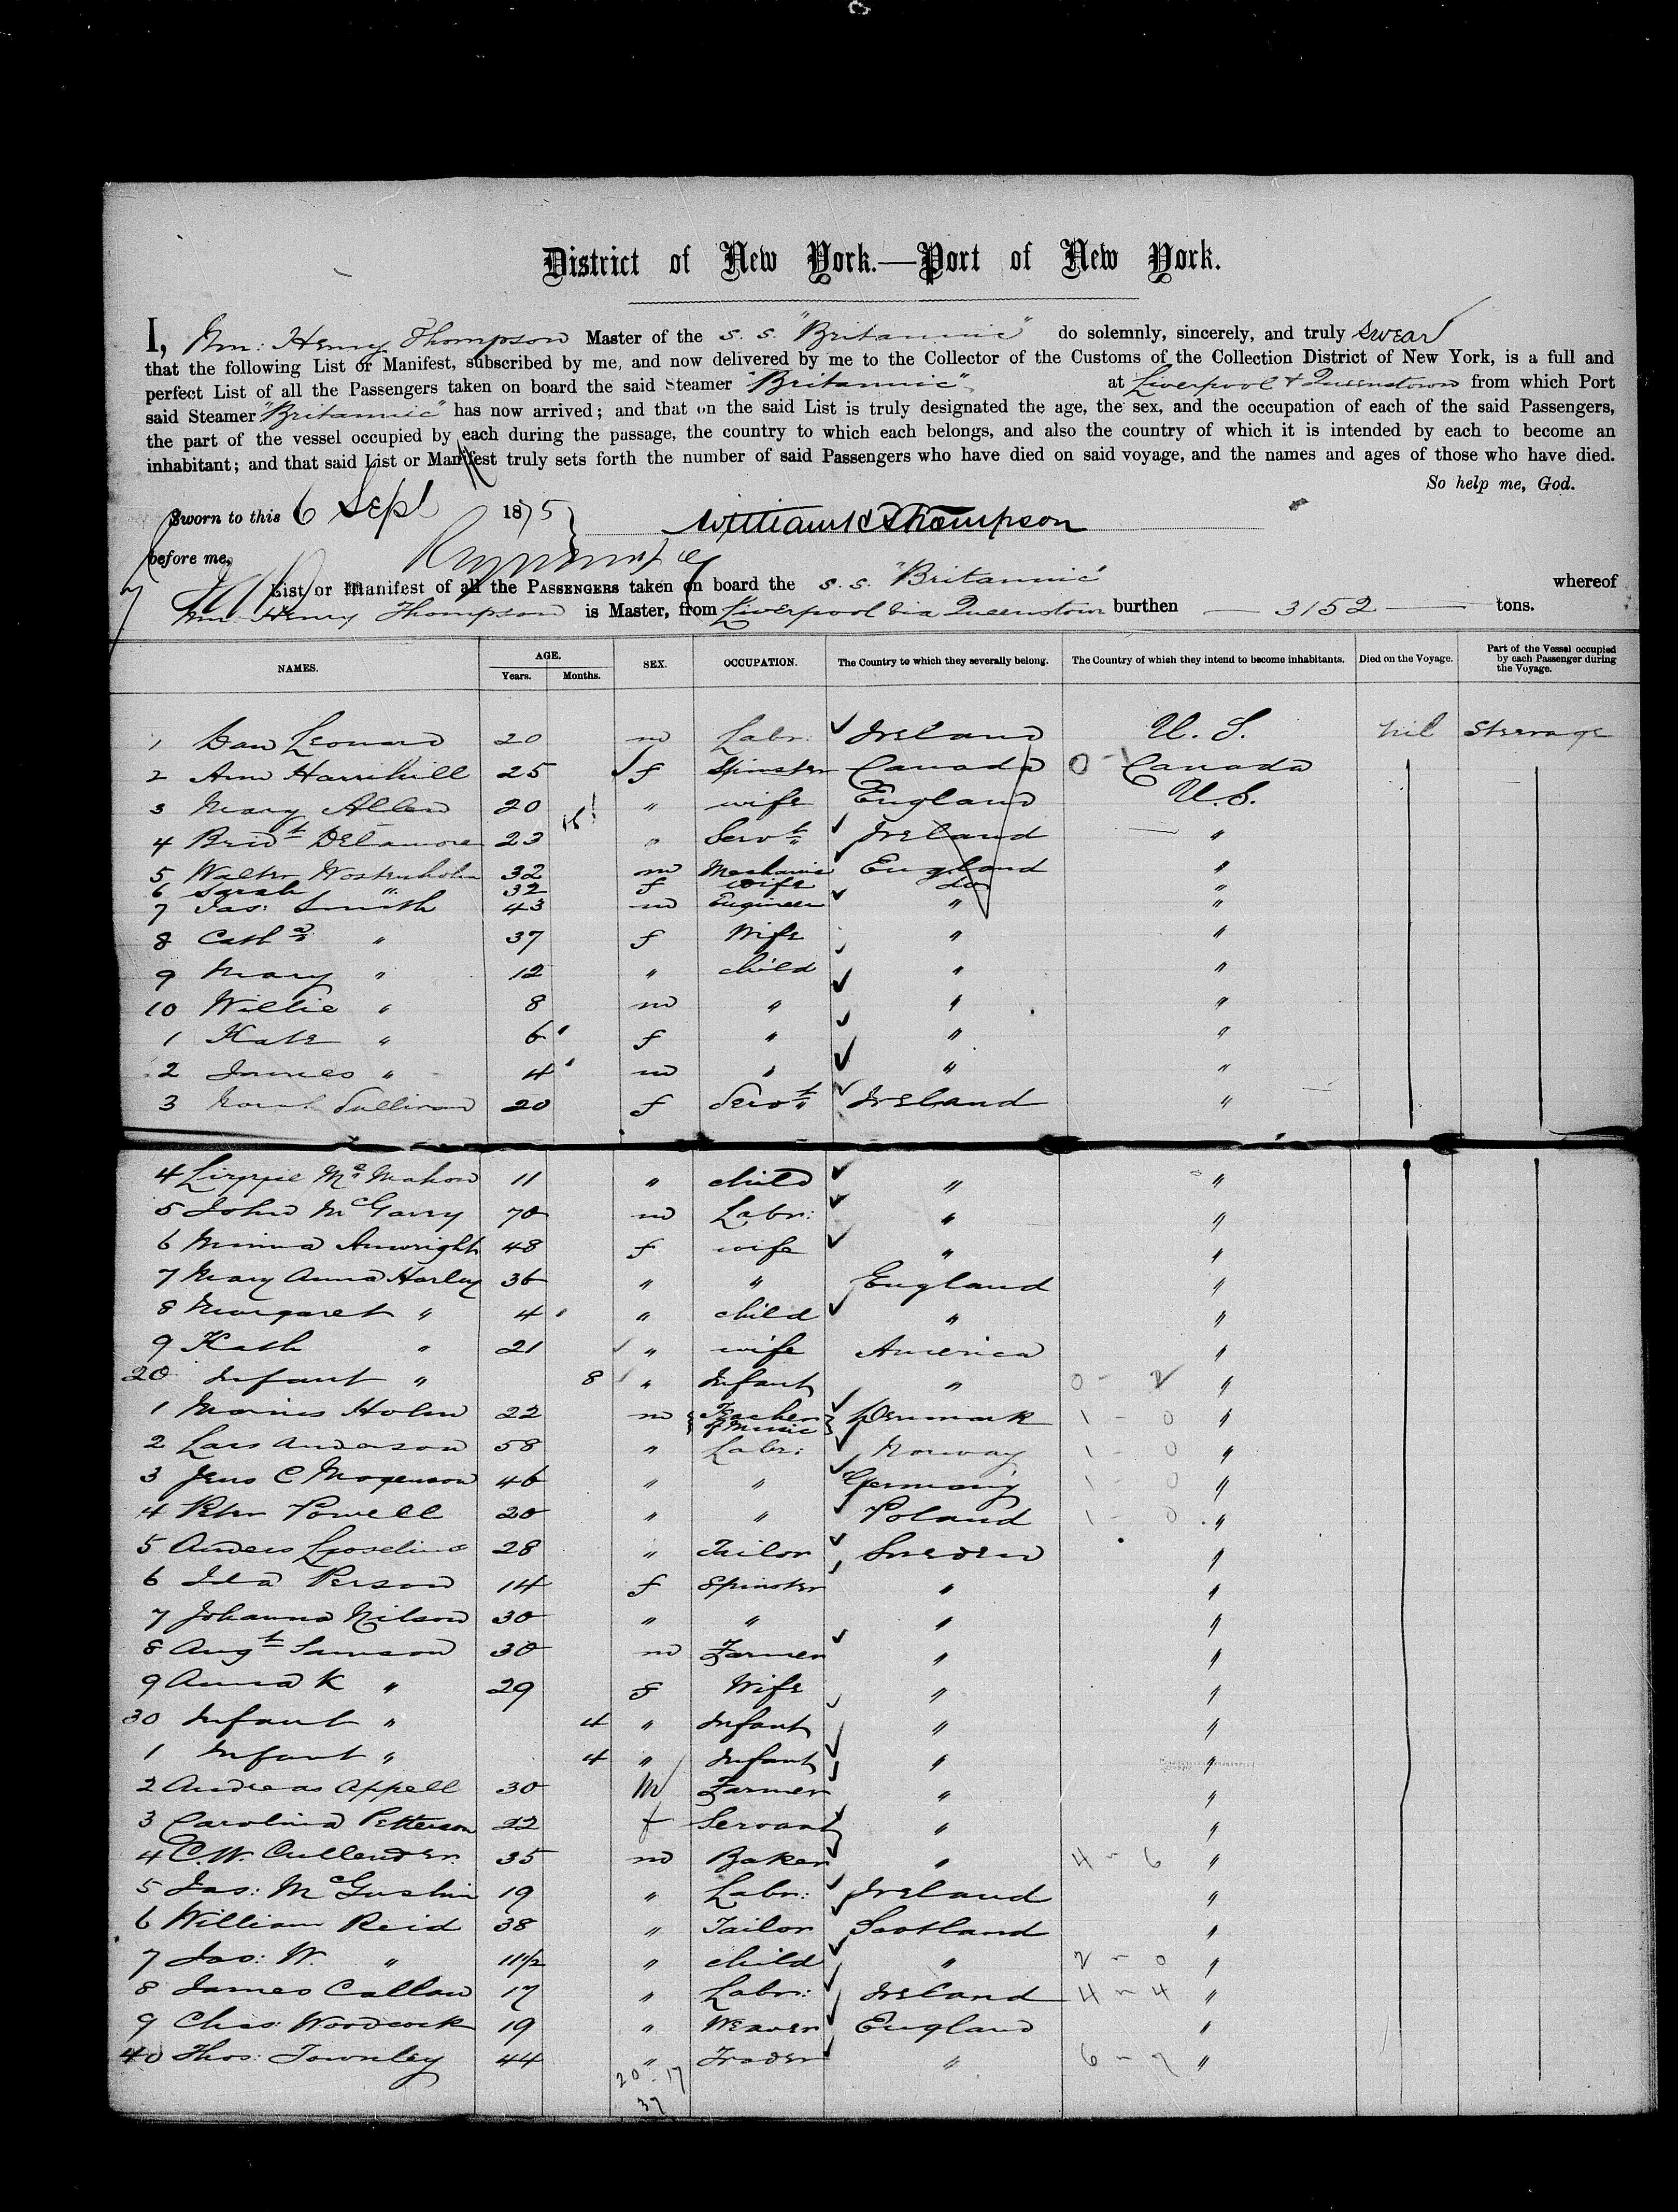 District of New York.—Port of New York.
I, Wm: Henry Thompson Master of the S. S. "Britannic" do solemnly, sincerely, and truly swear
that the following List or Manifest, subscribed by me, and now delivered by me to the Collector of the Customs of the Collection District of New York, is a full and
perfect List of all the Passengers taken on board the said Steamer "Britannic" at Liverpool & Queenstown from which Port
said Steamer "Britannic" has now arrived; and that on the said List is truly designated the age, the sex, and the occupation of each of the said Passengers,
the part of the vessel occupied by each during the passage, the country to which each belongs, and also the country of which it is intended by each to become an
inhabitant; and that said List or Manifest truly sets forth the number of said Passengers who have died on said voyage, and the names and ages of those who have died.
So help me, God.
Sworn to this 6 Sept 1875
William H Thompson
before me,
List or Manifest of all the PASSENGERS taken on board the S. S. "Britannic" whereof
Wm: Henry Thompson is Master, from Liverpool via Queenstown burthen — 3152 — tons.
NAMES. AGE. Years. Months. SEX. OCCUPATION. The Country to which they severally belong. The Country of which they intend to become inhabitants. Died on the Voyage. Part of the Vessel occupied by each Passenger during the Voyage.
1 Dan Leonard 20 m Labr: Ireland U. S. nil Steerage
2 Ann Harrihill 25 f Spinster Canada 0 - Canada
3 Mary Allen 20 " wife England U.S.
4 Bridt Delamore 23 " Servt Ireland "
5 Walter Wostenholm 32 m Mechanic England "
6 Sarah " 32 f wife do "
7 Jas: Smith 43 m Engineer " "
8 Cathe " 37 f Wife " "
9 Mary " 12 " child " "
10 Willie " 8 m " " "
1 Kate " 6 f " " "
2 James " 4 m " " "
3 Norah Sullivan 20 f Servt Ireland "
4 Lizzie Mc Mahon 11 " child " "
5 John McGarry 70 m Labr: " "
6 Minna Anwright 48 f wife " "
7 Mary Anna Harley 36 " " England "
8 Margaret " 4 " child " "
9 Kath " 21 " wife America "
20 Infant " 8 " Infant " 0 - 2 "
1 Marius Holm 22 m Teacher of Music Denmark 1 - 0 "
2 Lars Anderson 58 " Labr: Norway 1 - 0 "
3 Jens C Mogenson 46 " " Germany 1 - 0 "
4 Peter Powell 20 " " Poland 1 - 0 "
5 Anders 28 " Tailor Sweden "
6 Ida Person 14 f Spinster " "
7 Johanna Nilson 30 " " " "
8 Augt Samson 30 m Farmer " "
9 Anna K " 29 f Wife " "
30 Infant " 4 " Infant " "
1 Infant " 4 " Infant " "
2 Andreas Appell 30 M Farmer " "
3 Carolina Petterson 22 f Servant " "
4 C. W. Cullender 35 m Baker " 4 - 6 "
5 Jas: McGushin 19 " Labr: Ireland "
6 William Reid 38 " Tailor Scotland "
7 Jas: W. " 11½ " child " 2 - 0 "
8 James Callan 17 " Labr: Ireland 4 - 4 "
9 Chas: Woodcock 19 " Weaver England "
40 Thos: Townley 44 " Trader " 6 - 7 "
20 - 17
37